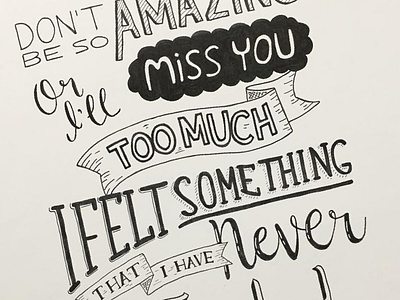 DON'T
BE SO AMAZING
Or
I'll MISS YOU
TOO MUCH
I FELT SOMETHING
THAT I HAVE Never